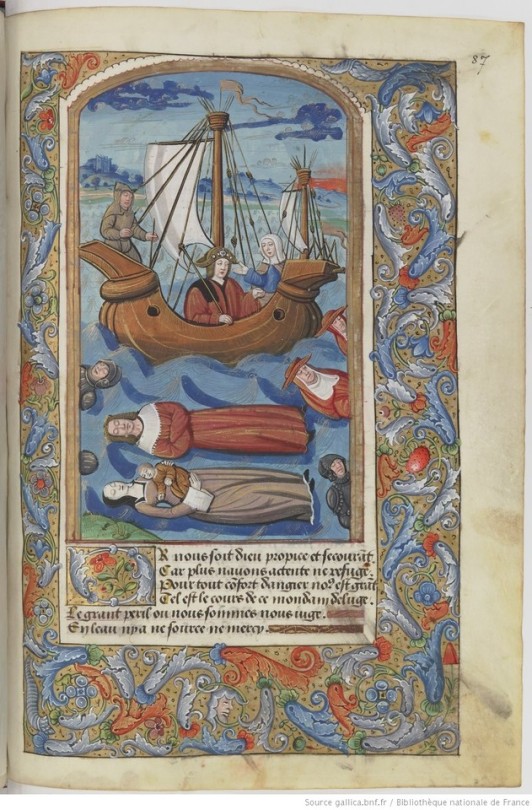 87
R nous soit dieu propice et secourāt
Car plus nauons attente ne refuge.
Pour tout cōfort dangier noꝰ est
Tel est le cours de ce mondain deluge.
Le grant peril ou nous sommes nous iuge.
En leau nya ne source ne mercy.
Source gallica.bnf.fr / Bibliothèque nationale de France